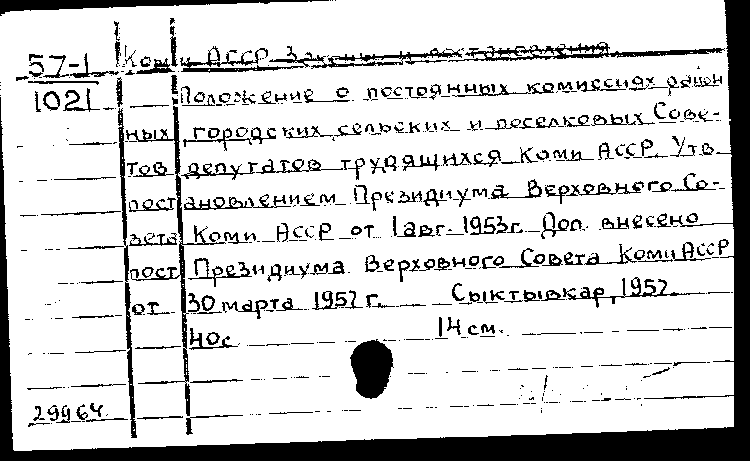 57-1 Коми АССР Законы и постановления.
1021 Положение о постоянных комиссиях район
ных, городских, сельских и поселковых Сове-
тов депутатов трудящихся Коми АССР. Утв.
постановлением Президиума Верховного Со-
вета Коми АССР от 1 авг. 1953г. Доп. внесено
пост Президиума Верховного Совета Коми АССР
от 30 марта 1957 г. Сыктывкар, 1957.
40с 14 см.
29964